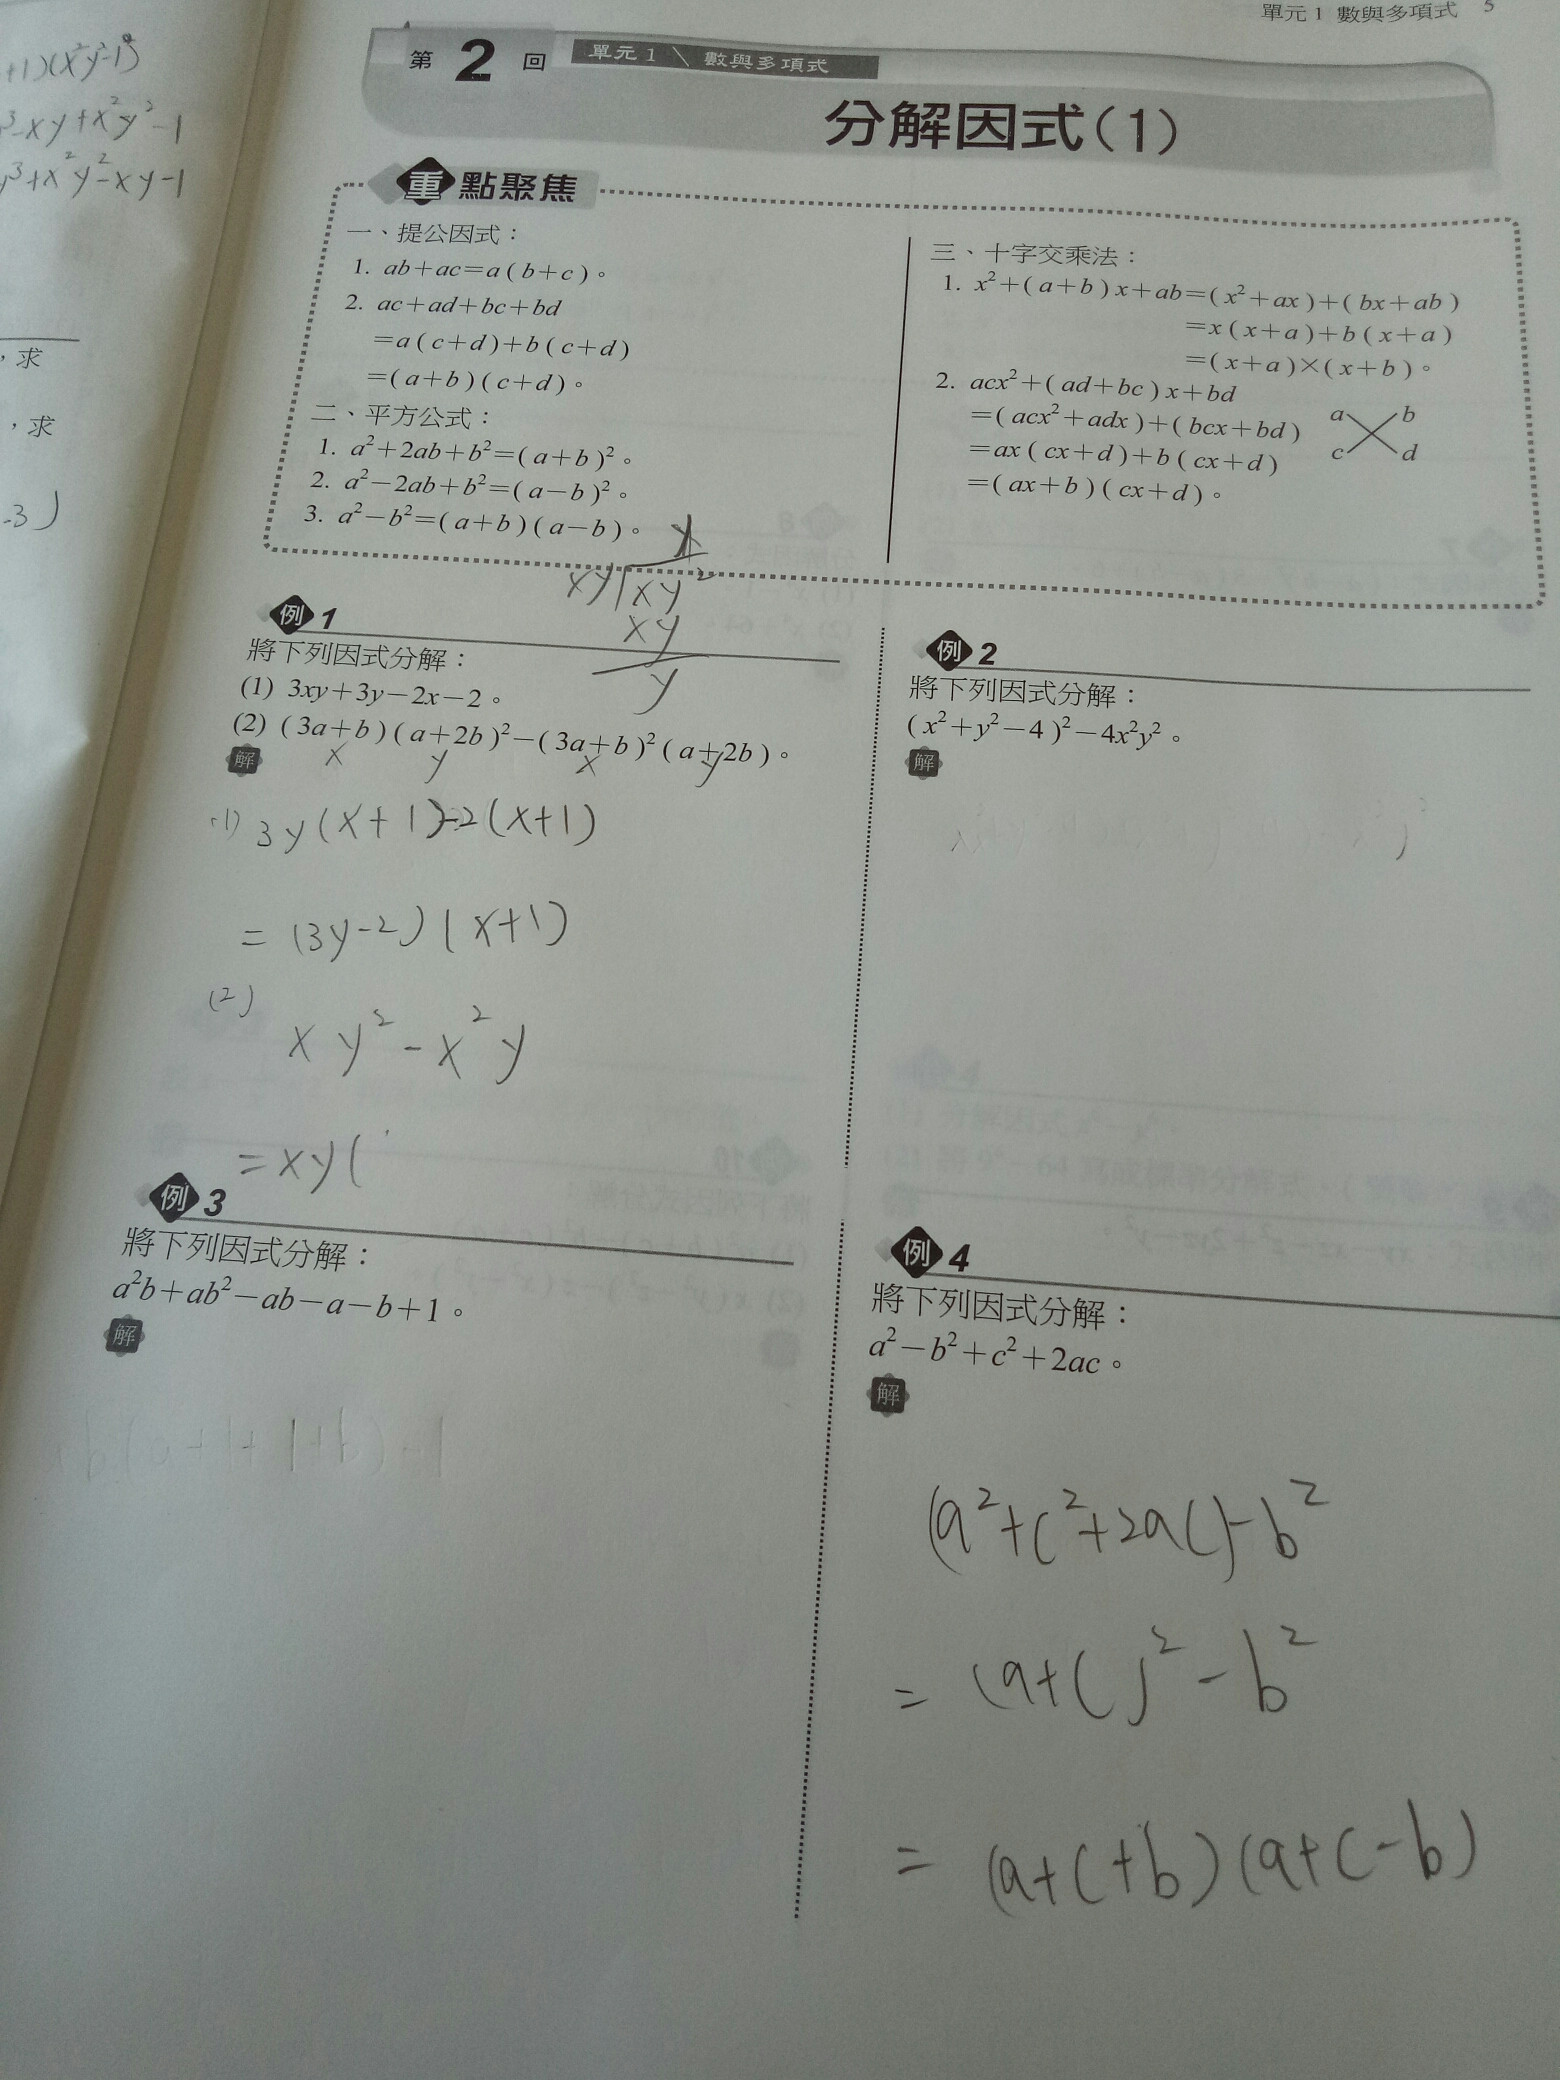 單元 1 數與多項式 5
+1)(x²y²-1)
³-xy+x²y²-1
y³+x²y²-xy-1
，求
，求
-3)
第 2 回 單元 1 \ 數與多項式
分解因式(1)
重點聚焦
一、提公因式：
1. ab+ac=a(b+c)。
2. ac+ad+bc+bd
=a(c+d)+b(c+d)
=(a+b)(c+d)。
二、平方公式：
1. a²+2ab+b²=(a+b)²。
2. a²-2ab+b²=(a-b)²。
3. a²-b²=(a+b)(a-b)。
三、十字交乘法：
1. x²+(a+b)x+ab=(x²+ax)+(bx+ab)
=x(x+a)+b(x+a)
=(x+a)×(x+b)。
2. acx²+(ad+bc)x+bd
=(acx²+adx)+(bcx+bd)
=ax(cx+d)+b(cx+d)
=(ax+b)(cx+d)。
a b
c d
y
xy xy²
xy
y
例 1
將下列因式分解：
(1) 3xy+3y-2x-2。
(2) (3a+b)(a+2b)²-(3a+b)²(a+2b)。
x y x y
解
(1) 3y(x+1)-2(x+1)
= (3y-2)(x+1)
(2)
xy²-x²y
=xy(
例 2
將下列因式分解：
(x²+y²-4)²-4x²y²。
解
例 3
將下列因式分解：
a²b+ab²-ab-a-b+1。
解
例 4
將下列因式分解：
a²-b²+c²+2ac。
解
(a²+c²+2ac)-b²
= (a+c)²-b²
= (a+c+b)(a+c-b)